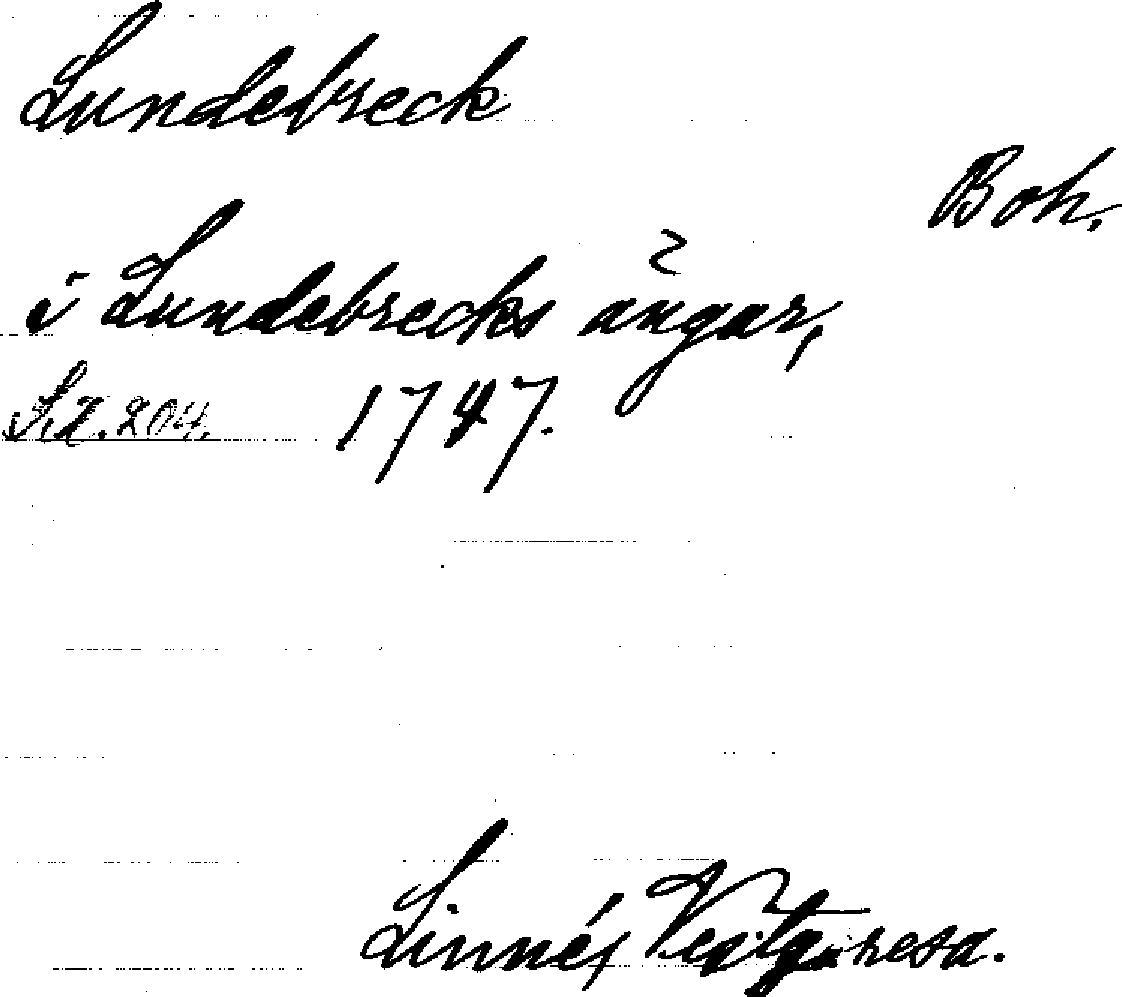 Lundebreck
Boh.
i Lundebrecks ängar,
S.Z. 204. 1747.
Linné, Vestg. resa.